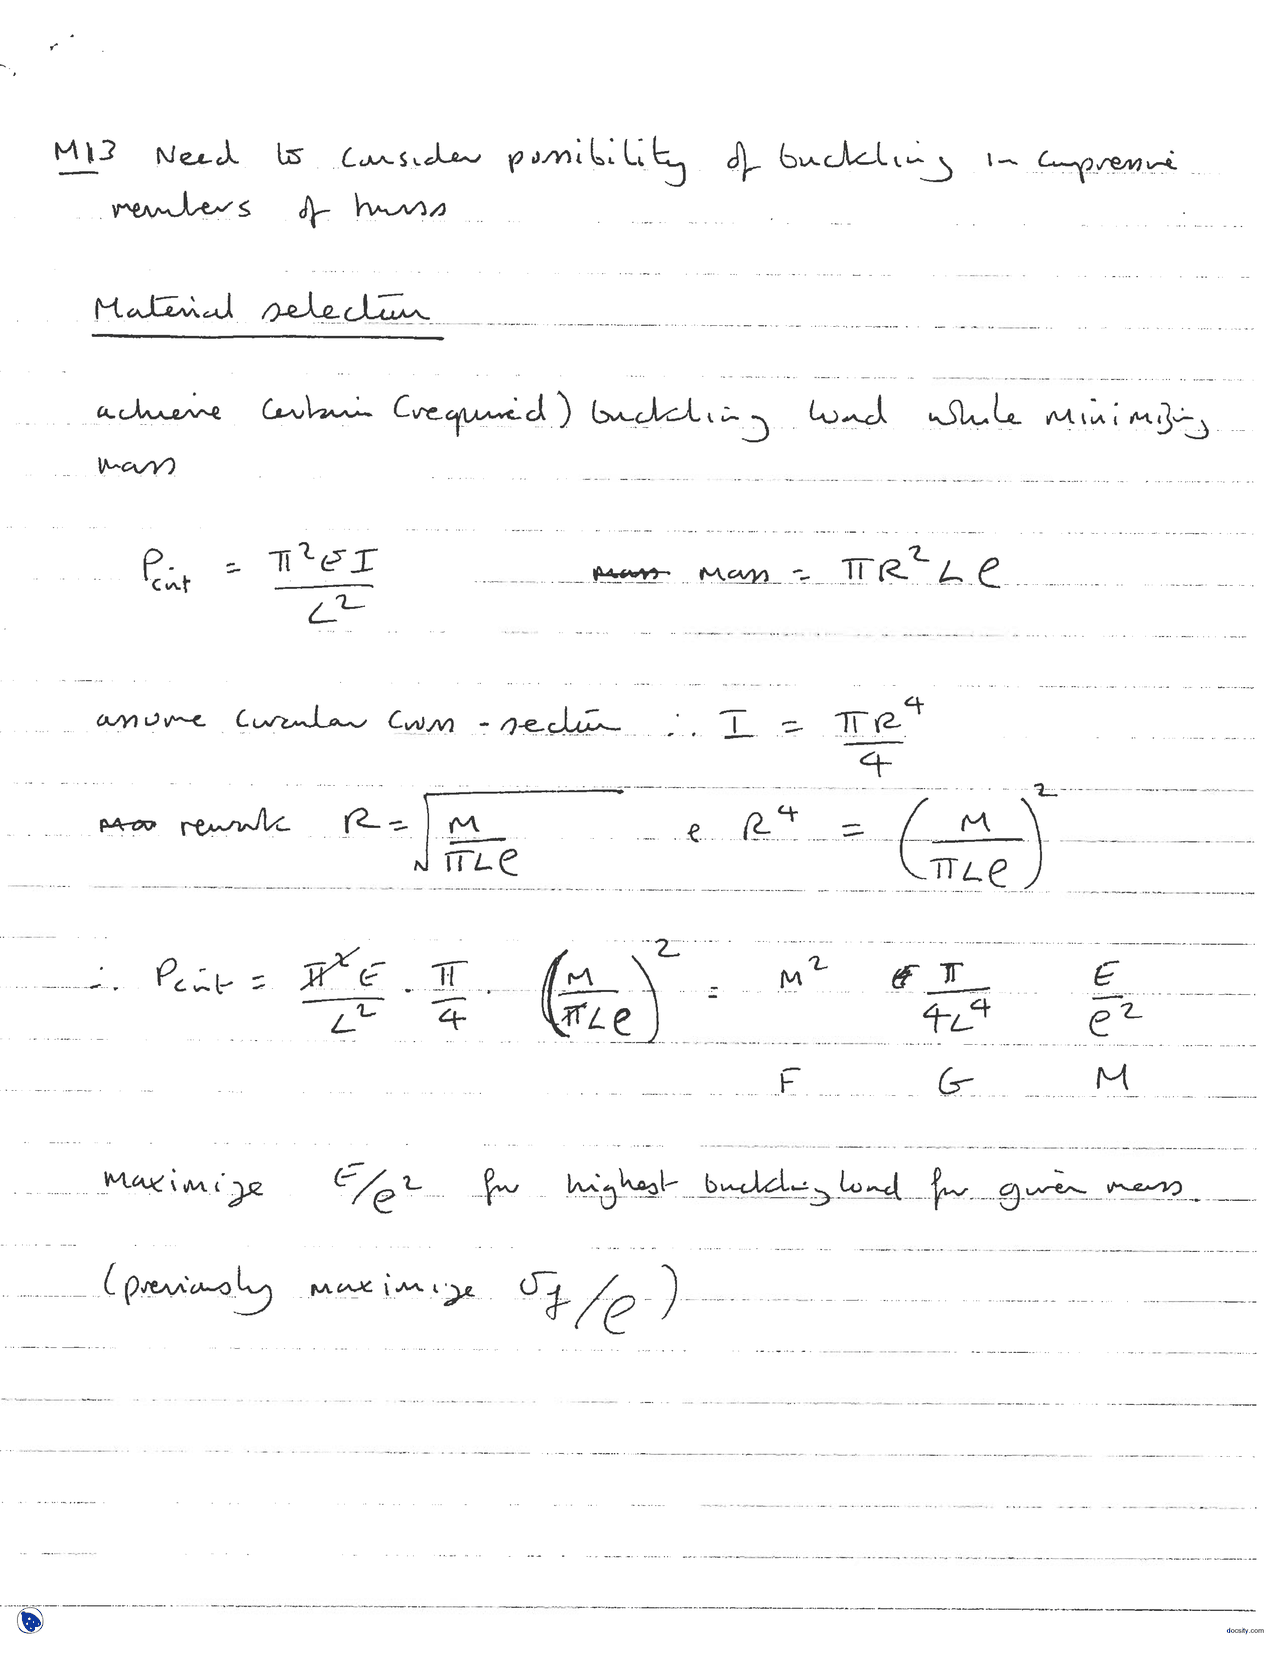 M13 Need to consider possibility of buckling in compressive
members of truss
Material selection
achieve certain (required) buckling load while minimizing
mass
P_crit = π²EI / L²    mass = πR²Lρ
assume circular cross-section ∴ I = πR⁴ / 4
rework R = √(M / πLρ)    e R⁴ = (M / πLρ)²
∴ P_crit = π²E / L² · π / 4 · (M / πLρ)² = M² · π / 4L⁴  E / ρ²
F G M
maximize E/ρ² for highest buckling load for given mass.
(previously maximize σf/ρ)
docsity.com